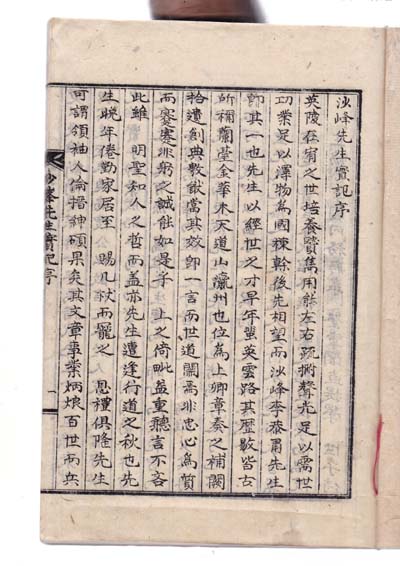 沙峰先生實記序
英陵在宥之世培養賢雋用能左右疏附聲光足以需世
功業足以澤物為國楨幹後先相望而沙峰李先生
即其一也先生以經世之才早年蜚英雲路其歷敭皆古
所稱蘭臺金華木天道山瀛州也位為上卿章奏之補闕
拾遺創典敷猷當其效即一言而世道關焉非忠心為質
而蹇蹇非躬之誠能如是乎 上之倚毗益重聽言不吝
此雖 明聖知人之哲而蓋亦先生遭逢行道之秋也先
生晚年倦勤家居至 賜几杖而寵之 恩禮俱隆先生
可謂領袖人倫搢紳碩果矣其文章事業炳烺百世而兵
沙峰先生實記序
一